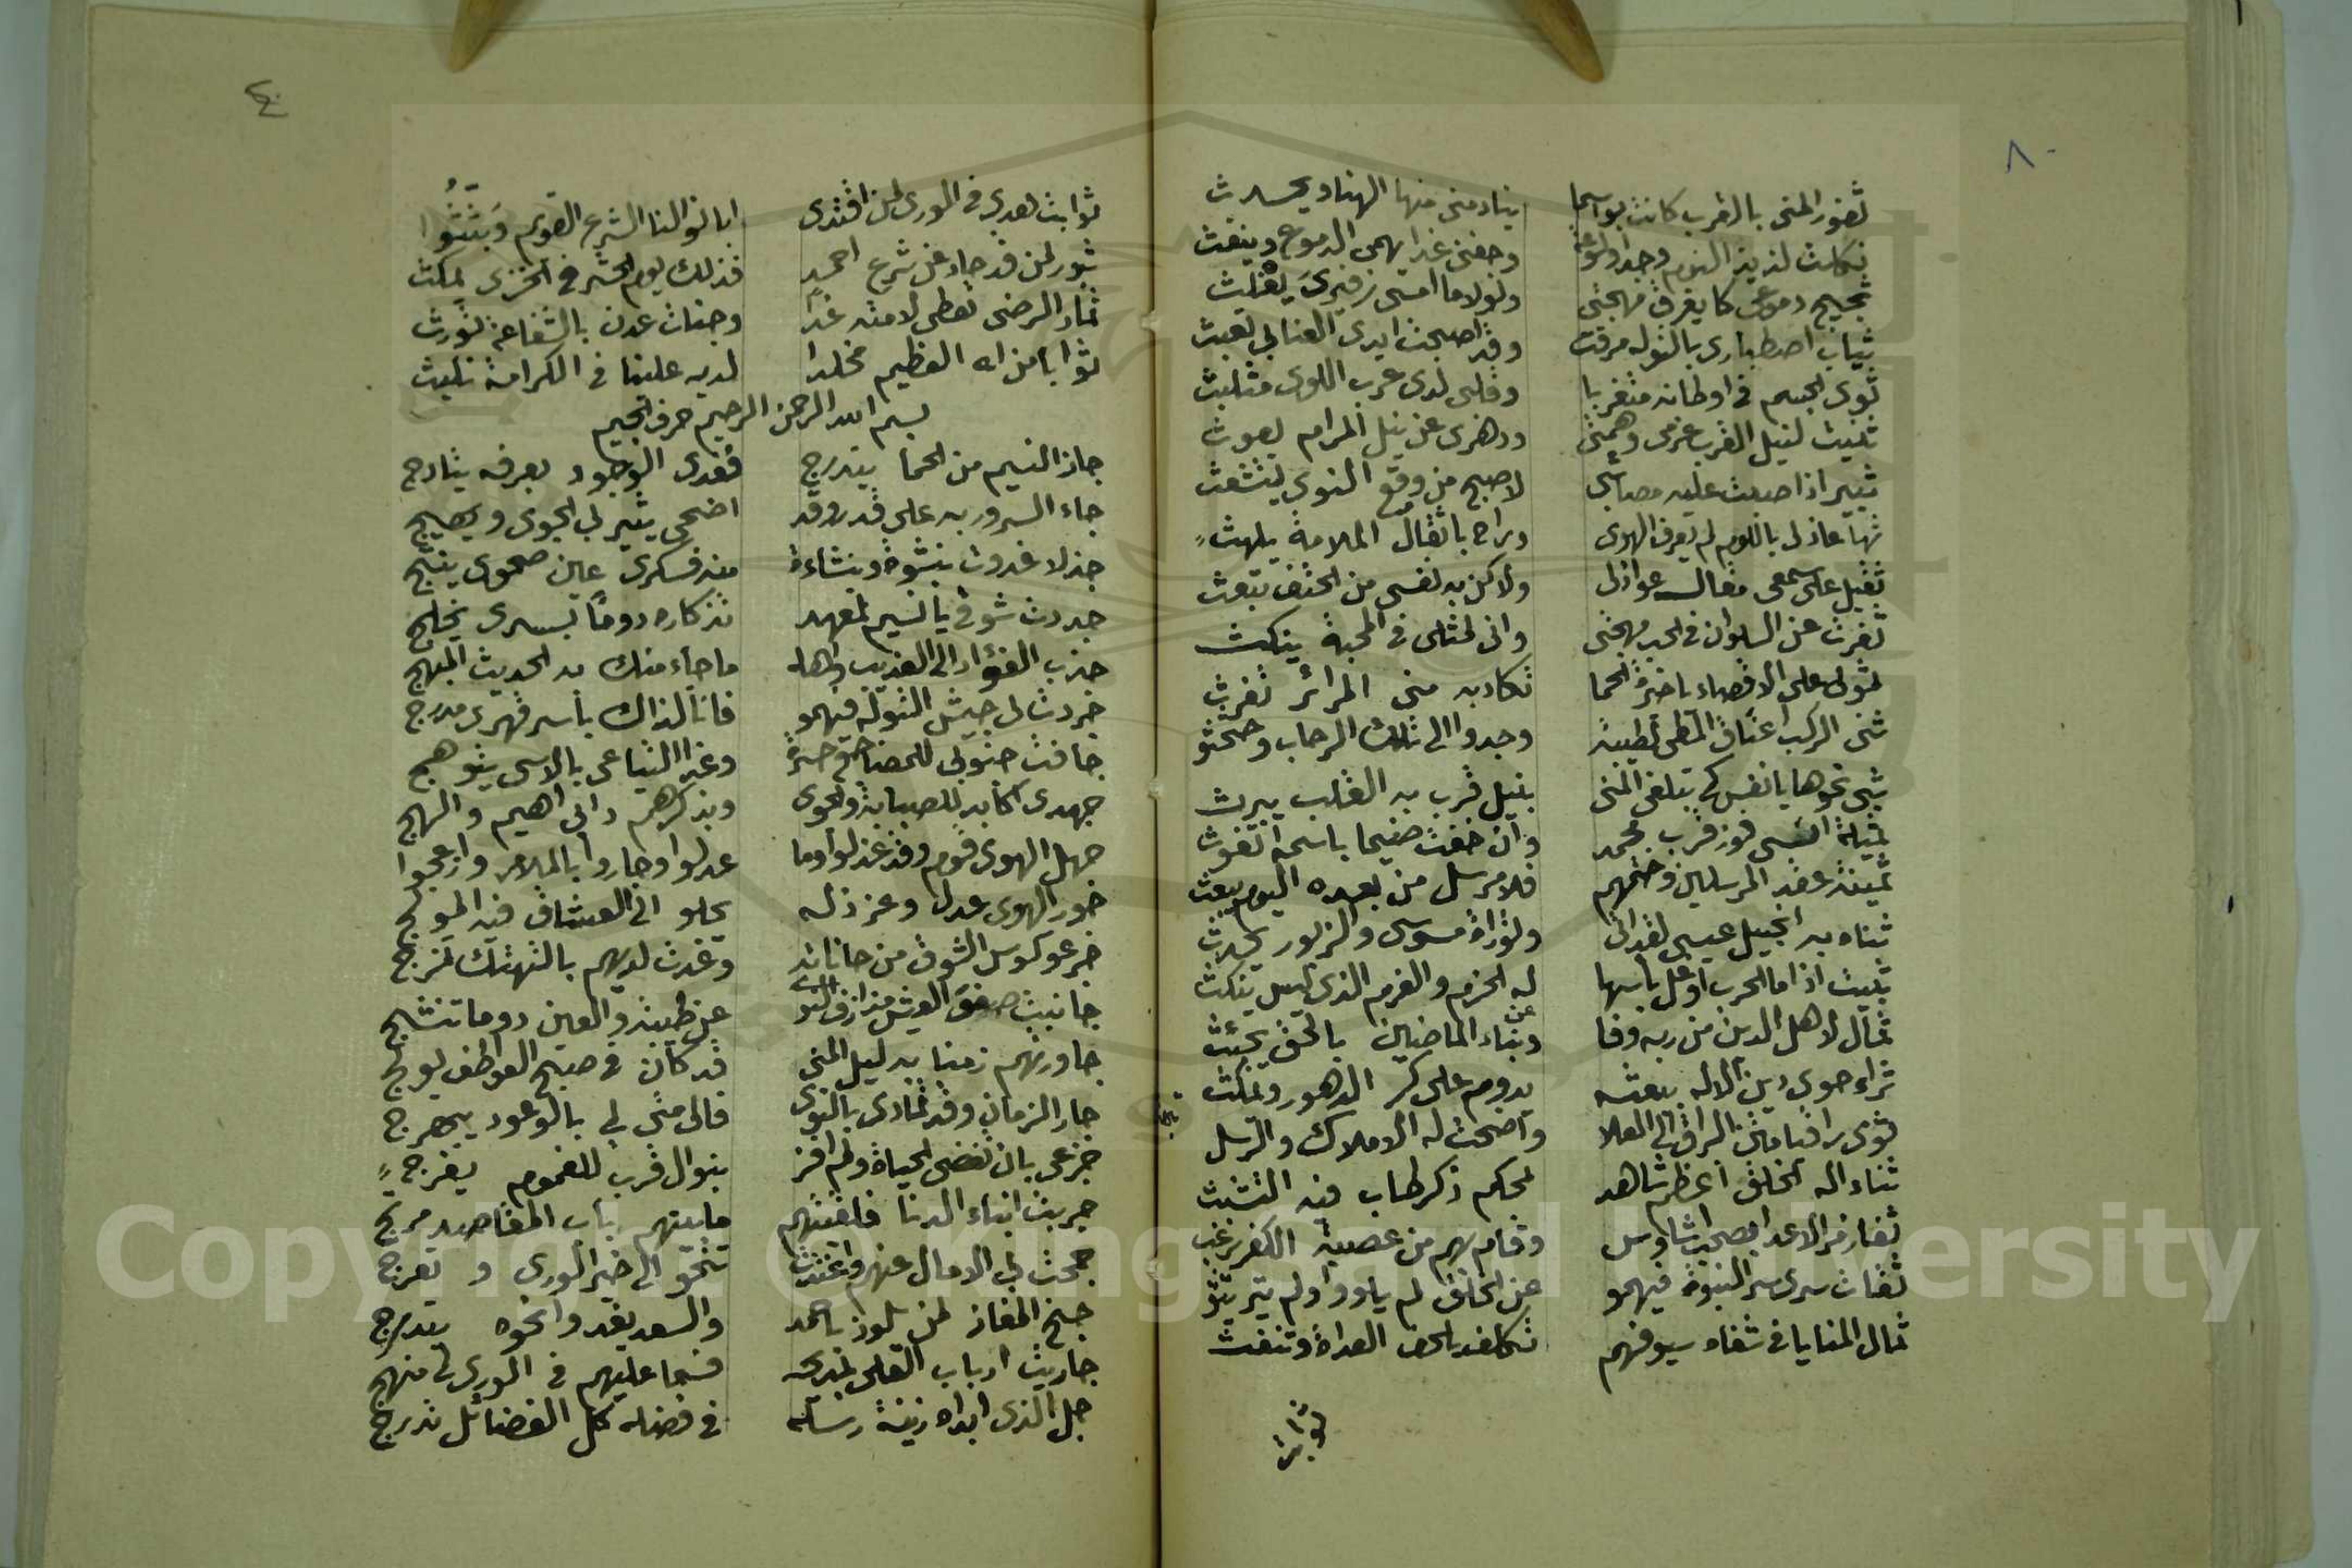 ٨٠
ثغور المنى بالقرب كانت بواسما ينادمنى منها الهنا ويحدث
ثكلت لذيذ النوم وجدا ولوعة وجفنى غدا يهمى الدموع وينفث
ثجيج دموعى كا يغرق مهجتى ولولا ما امسى زفيرى
ثياب اصطبارى بالتوله مزقت وقد اصبحت ايدى العنا بى تعبث
ثوى الجسم فى اوطانه متغربا وقلبى لدى عرب اللوى متلبث
ثنيت لنيل القرب عزمى وهمتى ودهرى عن نيل المرام يعوث
ثبير اذا صبت عليه مصائبى لاصبح من وقع النوى يتشعث
نها عاذلى باللوم لم يعرف الهوى وراح باثقال الملامة يلهث
ثقيل على سمعى مقال عواذلى ولاكن به نفسى من الحتف تبعث
نفرت عن السلوان فى الحب مهجتى وانى لمثلى فى المحبة ينكث
تكاد به منى المرائر تفرث
ثنى الركب اعناق المطى لطيبة وجدوا الى تلك الرحاب وحثحثو
ثبى نحوها يا نفس كى تبلغى المنى بنيل قرب به القلب يبرث
فوز قرب محمد وان خفت ضيما باسمه تغوث
ثمينة عقد المرسلين وختمهم فلا مرسل من بعده اليوم يبعث
ثناه به انجيل عيسى لقد اتى وتوراة موسى والزبور يحدث
ثبيت اذا ما الحرب باسها له الحزم والعزم الذى ليس ينكث
ثمال لاهل الدين من ربه وفا وبناء الماضين بالحق يجئث
ثراء حوى دين الاله ببعثه يدوم على كر الدهور ويمكث
ثوى راقيا متن البراق الى العلا واضحت له الاملاك والرسل
ثناء اله الخلق اعظم شاهد لمحكم ذكر طاب فيه التشبث
وقام بهم من عصبة الكفر
ثقات سرى سر النبوة فيهمو عن الخلق لم يلووا ولم يتريثو
ثمال المنايا فى شفاه سيوفهم العداة وتنفث
ثوابت
٤٠
ثوابت هدى فى الورى لمن اقتدى ابانوا لنا الشرع القويم وبثثوا
ثبور لمن قد حاد عن شرع احمد فذلك يوم الحشر فى الخزى يمكث
ثمار الرضى تعطى لامته غدا وجنات عدن بالشفاعة تورث
ثوابا من اله العظيم مخلدا لديه علينا فى الكرامة تلبث
بسم الله الرحمن الرحيم حرف الجيم
جاز النسيم من الحما يتدرج فغدى الوجود بعرفه يتأرج
جاء السرور به على قدر وقد اضحى يثير لى الجوى ويهيج
جذلا غدوت بنشوة وبنشاءة منه فسكرى عين صحوى ينتج
جددت شوقى يا نسيم لمعهد تذكاره دوما بسرى يخلج
جذب الفؤاد الى العذيب واهله ما جاء منك به الحديث المبهج
جردت لى جيش التوله فيهمو فانا لذاك بأسر قهرى مدرج
جافت جنوبى للمضاجع حسرة وغدا التياعى بالاسى يتوهج
جهدى اكابد للصبابة والجوى وبذكرهم دابى اهيم والهج
جهل الهوى قوم وقد عذلوا وما عدلوا وجاروا بالملام وازعجوا
جور الهوى عدل وعز ذله يحلو الى العشاق فيه المولج
جرعو كوس الشوق من حاناته وغدت لديهم بالتهتك تمزج
جانبت صفو العيش مذ ازف النوى عن طيبة والعين دوما تنشج
جاورتهم زمنا به ليل المنى قد كان فى صبح العواطف يولج
جار الزمان وقد تمادى بالنوى فالى متى لى بالوعود يبهرج
جزعى بان تقضى الحياة ولم افز بنوال قرب للغموم يفرج
جربت ابناء الدنا فلقيتهم ما بينهم باب المقاصد مرتج
جمحت بى الامال عنهم واغتدت تنحو الى خير الورى وتعرج
جنح المفاز لمن يلوذ باحمد والسعد يغدو نحوه يتدرج
جاريت ارباب العلى بمديحه فسما عليهم فى الورى لى منهج
جل الذى ابداه زينة رسله فى فضله كل الفضائل تدرج
Copyright © King Saud University